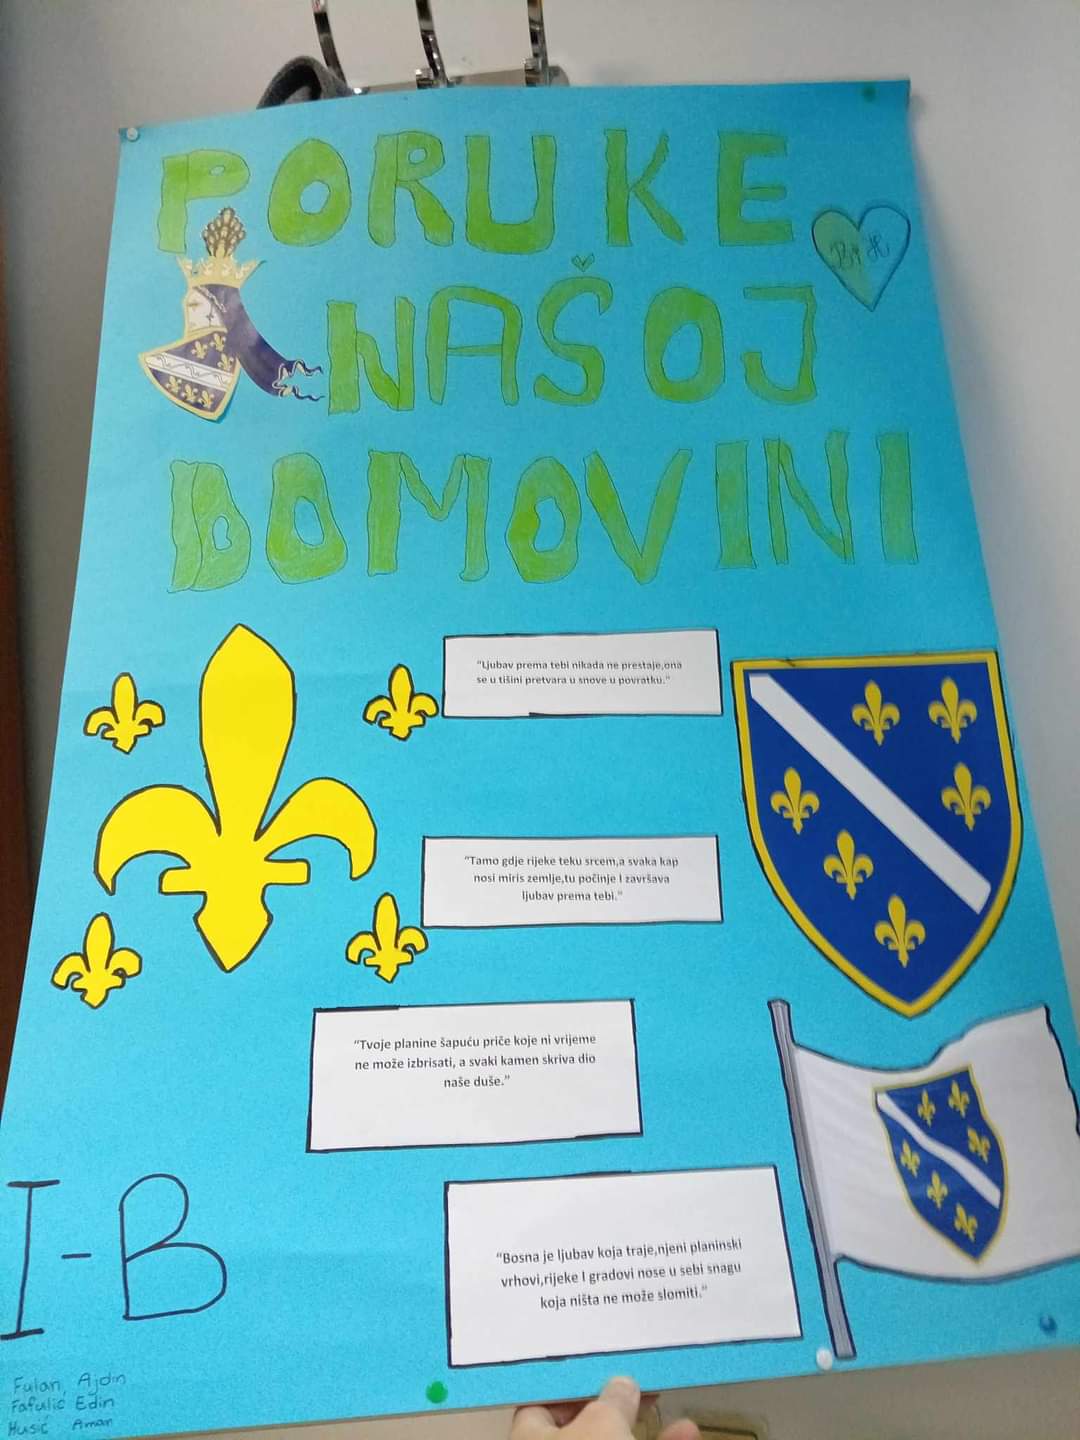 PORUKE
BiH
NAŠOJ
DOMOVINI
"Ljubav prema tebi nikada ne prestaje,ona
se u tišini pretvara u snove u povratku."
"Tamo gdje rijeke teku srcem,a svaka kap
nosi miris zemlje,tu počinje I završava
ljubav prema tebi."
"Tvoje planine šapuću priče koje ni vrijeme
ne može izbrisati, a svaki kamen skriva dio
naše duše."
"Bosna je ljubav koja traje,njeni planinski
vrhovi,rijeke I gradovi nose u sebi snagu
koja ništa ne može slomiti."
I-B
Fulan, Ajdin
Fafulić Edin
Husić Aman